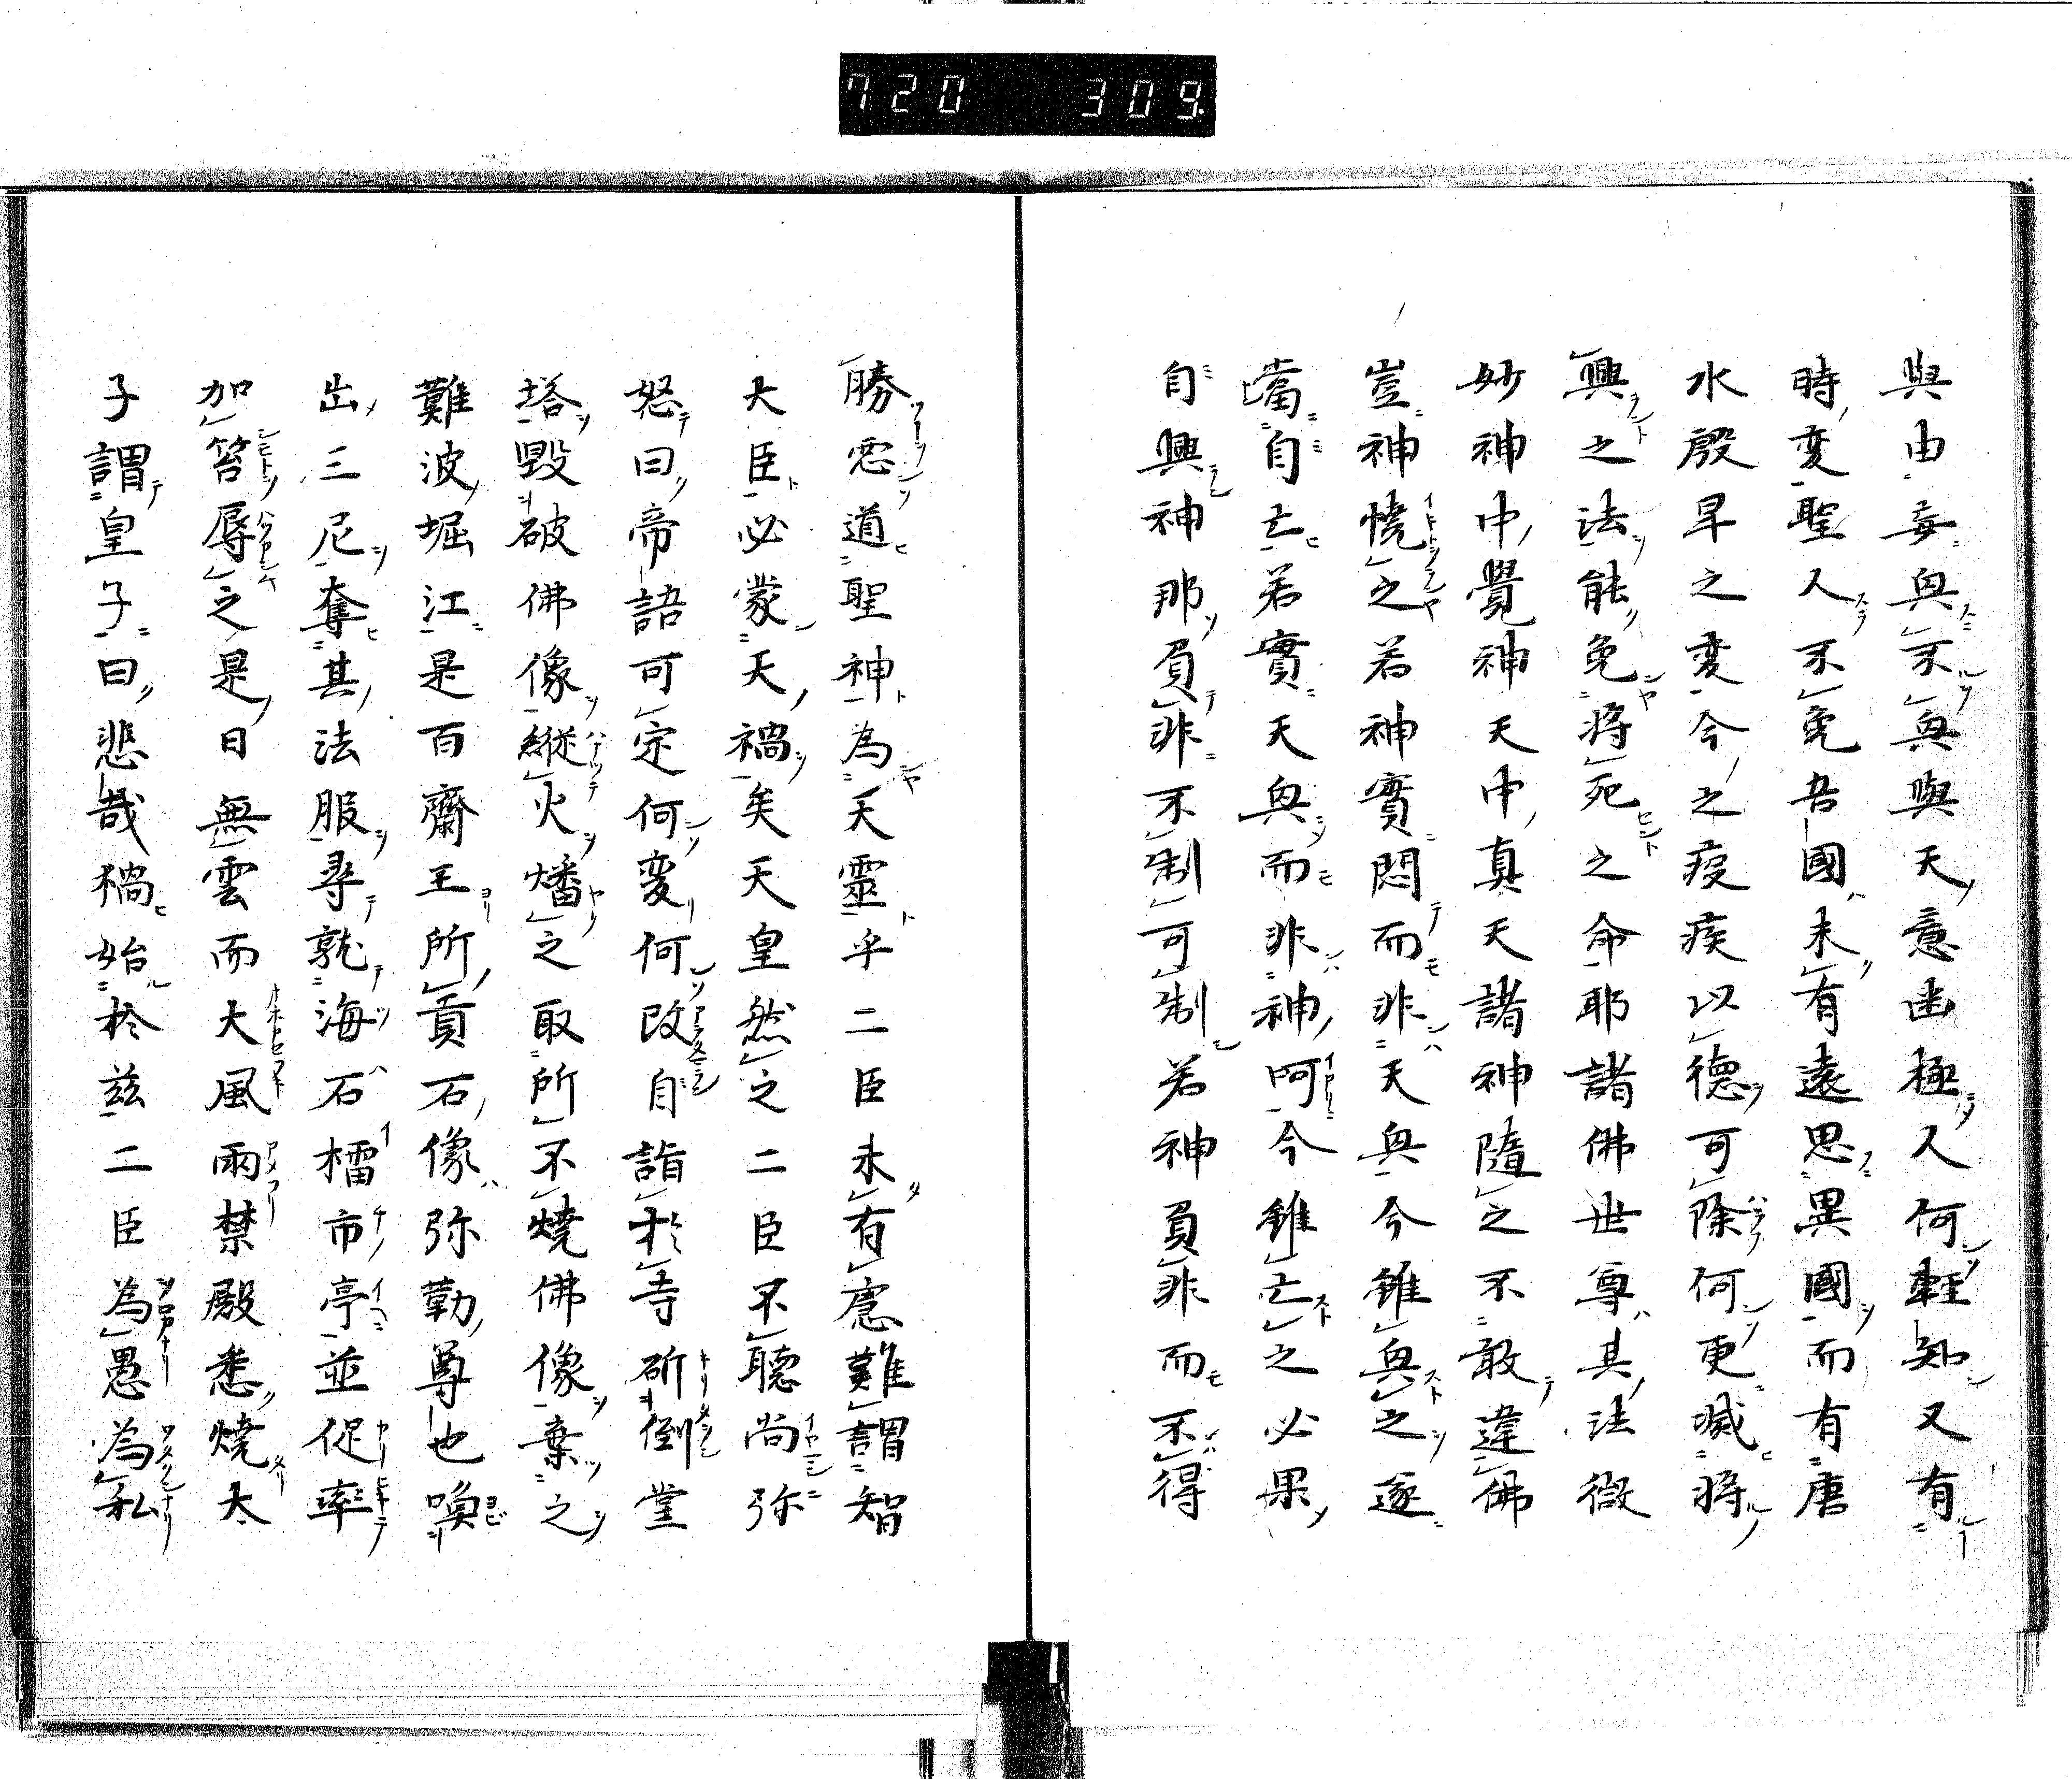 720 309
與由妄與不與與天意幽極人何輕知又有
時変聖人不免吾國未有遠思異國而有唐
水殷旱之変今之疫疾以德可除何更滅將
興之法能免將死之命耶諸佛世尊其法微
妙神中覺神天中真天諸神隨之不敢違佛
豈神憢之若神實悶而非天與今雖與之遂
當自亡若實天與而非神呵今雖亡之必果
自興神那員非不制可制若神員非而不得
勝惡道聖神為天靈乎二臣未有慮難謂智
大臣必蒙天禍矣天皇然之二臣不聽尚弥
怒曰帝語可定何変何改自詣於寺斫倒堂
塔毀破佛像縱火燔之取所不燒佛像棄之
難波堀江是百齋王所貢石像弥勒尊也喚
出三尼奪其法服尋就海石榴市亭並促率
加笞辱之是日無雲而大風雨禁殿悉燒太
子謂皇子曰悲哉禍始於茲二臣為愚為私